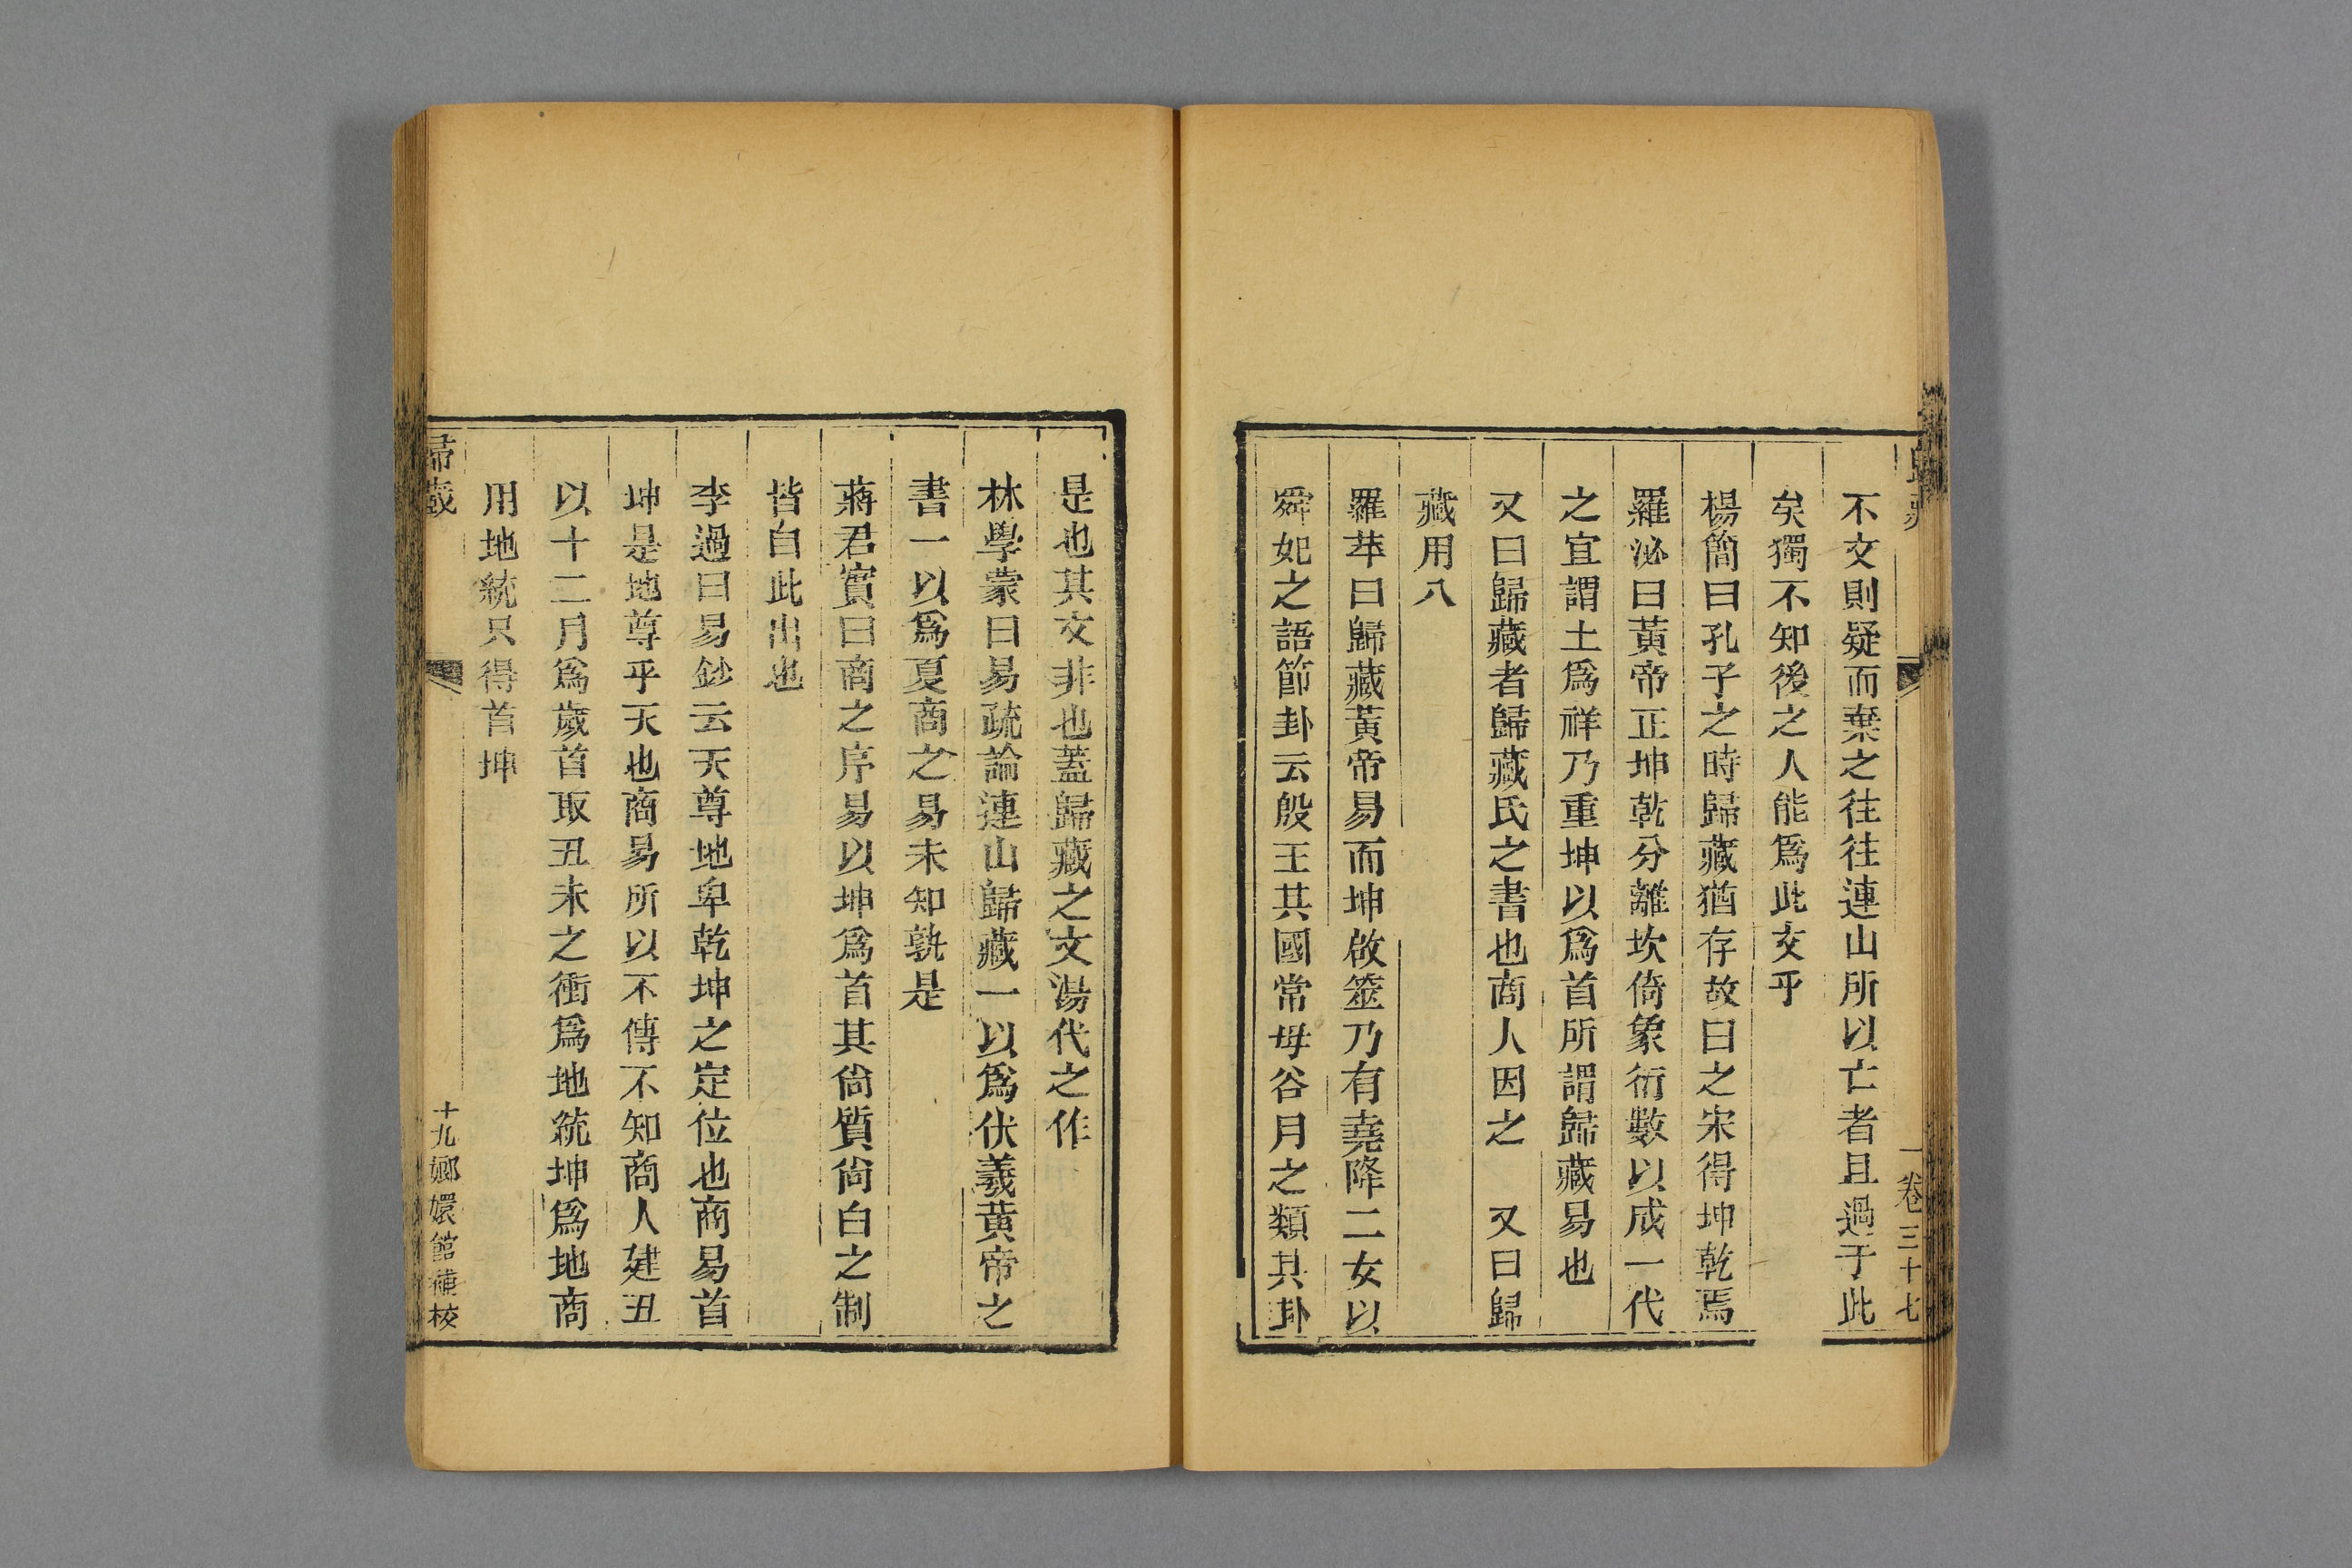 歸藏
卷三十七
不文則疑而棄之往往連山所以亡者且過于此
矣獨不知後之人能爲此文乎
楊簡曰孔子之時歸藏猶存故曰之宋得坤乾焉
羅泌曰黃帝正坤乾分離坎倚象衍數以成一代
之宜謂土爲祥乃重坤以爲首所謂歸藏易也
又曰歸藏者歸藏氏之書也商人因之　又曰歸
藏用八
羅苹曰歸藏黃帝易而坤啟筮乃有堯降二女以
舜妃之語節卦云殷王其國常毋谷月之類其卦
是也其文非也蓋歸藏之文湯代之作
林學蒙曰易疏論連山歸藏一以爲伏羲黃帝之
書一以爲夏商之易未知孰是
蔣君實曰商之序易以坤爲首其尙質尙白之制
皆自此出也
李過曰易鈔云天尊地卑乾坤之定位也商易首
坤是地尊乎天也商易所以不傳不知商人建丑
以十二月爲歲首取丑未之衝爲地統坤爲地商
用地統只得首坤
歸藏
十九嫏嬛館補校